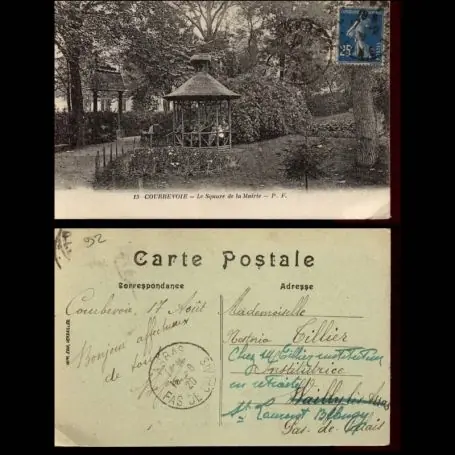 25
15 COURBEVOIE – Le Square de la Mairie – P. F.
92
Carte Postale
Correspondance
Adresse
Courbevoie, 17 Août
Bonjour affectueux
de
Mademoiselle
Tillier
Chez Mr Tillier instituteur
Institutrice
en retraite
Wailly les Arras
St Laurent Blangy
Pas-de-Calais
ARRAS
20
PAS DE CALAIS